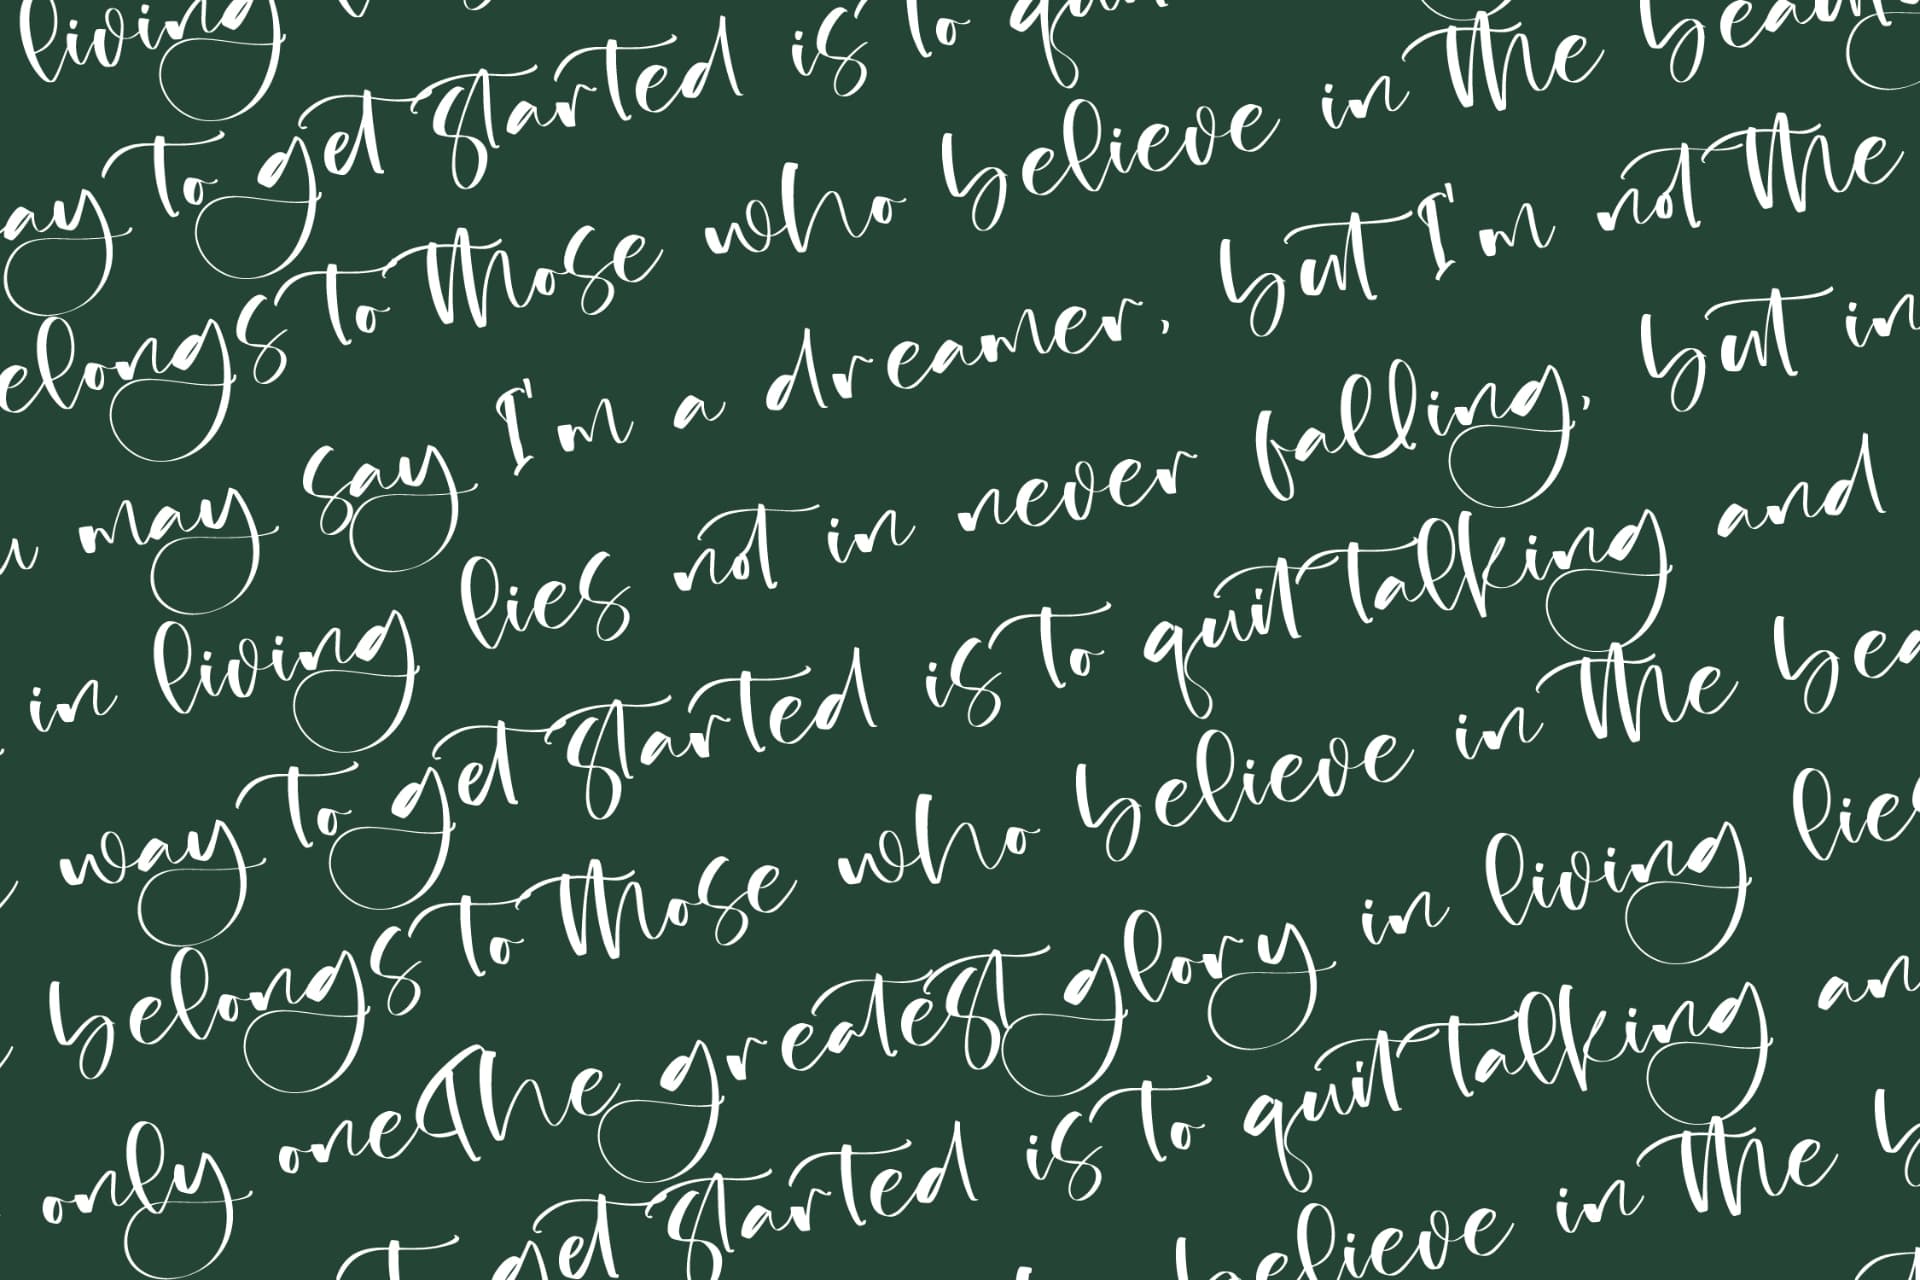 living
ay to get started is to
elongs to those who believe in the
may say I'm a dreamer, but I'm not the
in living lies not in never falling, but in
way to get started is to quit talking and
belongs to those who believe in the
only one The greatest glory in living
get started is to quit talking
believe in the